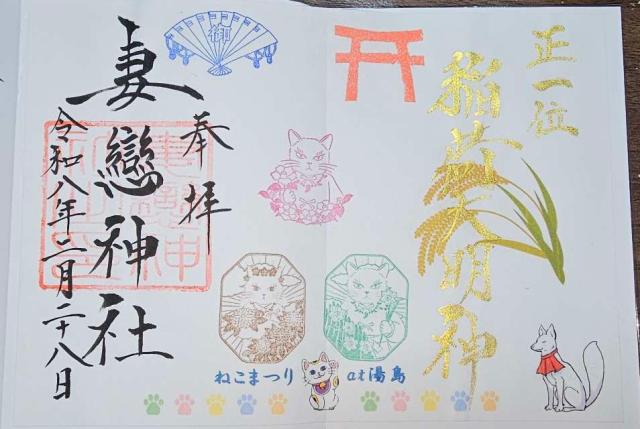 正一位
稲荷大明神
御
奉拝
妻戀神社
令和八年二月二十八日
ねこまつり at湯島